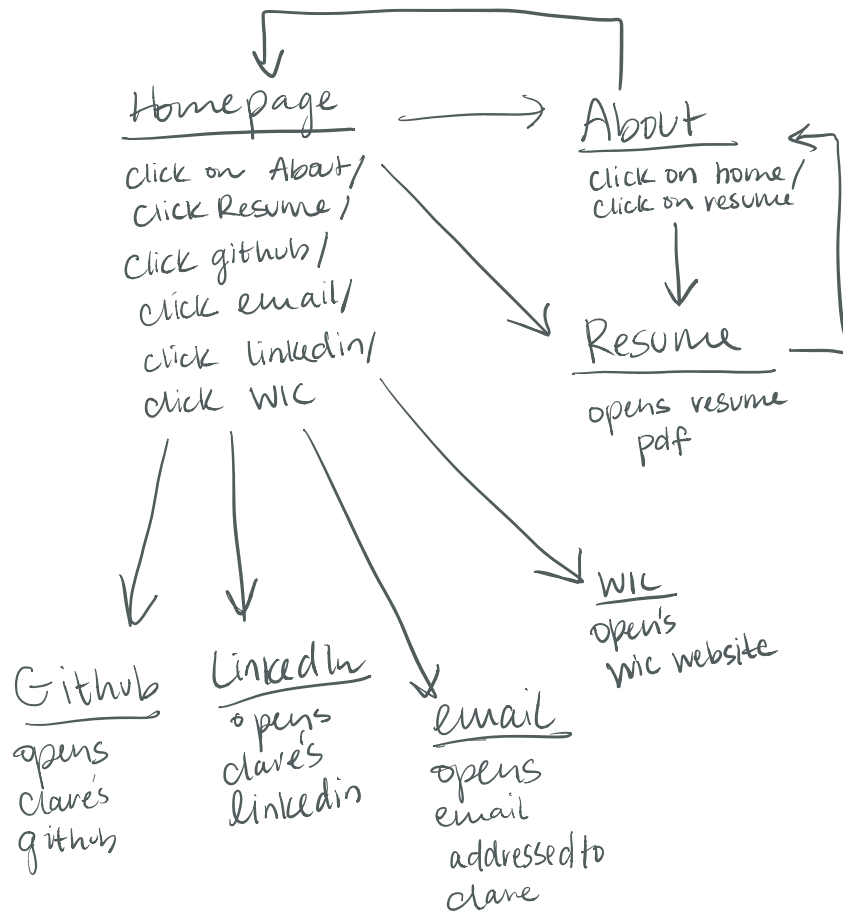 Homepage
click on About/
click Resume/
click github/
click email/
click linkedin/
click WIC
About
click on home/
click on resume
Resume
opens resume
pdf
WIC
open's
WIC website
Github
opens
clare's
github
LinkedIn
opens
clare's
linkedin
email
opens
email
addressed to
clare